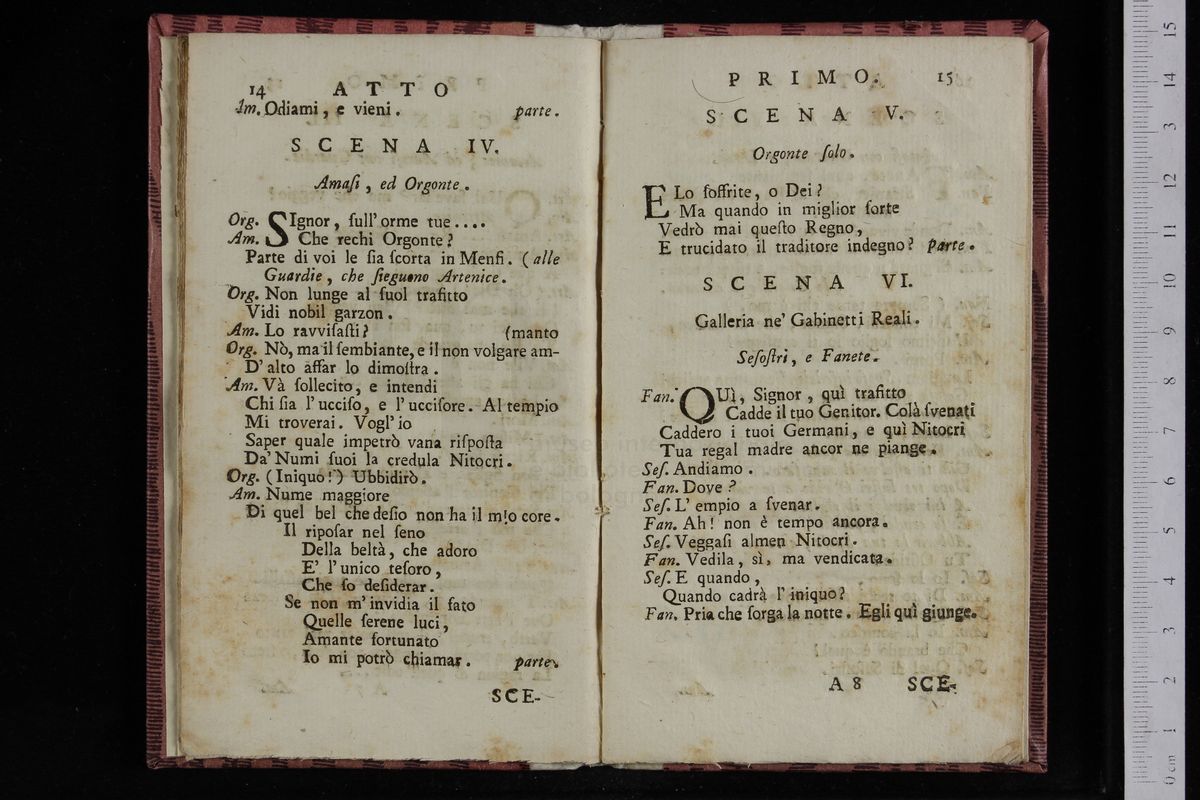 14 ATTO
Am. Odiami, e vieni. parte.
SCENA IV.
Amaſi, ed Orgonte.
Org. SIgnor, ſull' orme tue....
Am. Che rechi Orgonte?
Parte di voi le ſia ſcorta in Menfi. (alle
Guardie, che ſieguono Artenice.
Org. Non lunge al ſuol trafitto
Vidi nobil garzon.
Am. Lo ravviſaſti? (manto
Org. Nò, ma il ſembiante, e il non volgare am-
D' alto affar lo dimoſtra.
Am. Và ſollecito, e intendi
Chi ſia l' ucciſo, e l' ucciſore. Al tempio
Mi troverai. Vogl' io
Saper quale impetrò vana riſpoſta
Da' Numi ſuoi la credula Nitocri.
Org. (Iniquo!) Ubbidirò.
Am. Nume maggiore
Di quel bel che deſio non ha il mio core.
Il ripoſar nel ſeno
Della beltà, che adoro
E' l' unico teſoro,
Che ſo deſiderar.
Se non m' invidia il fato
Quelle ſerene luci,
Amante fortunato
Io mi potrò chiamar. parte.
SCE-
PRIMO. 15
SCENA V.
Orgonte ſolo.
E Lo ſoffrite, o Dei?
Ma quando in miglior ſorte
Vedrò mai queſto Regno,
E trucidato il traditore indegno? parte.
SCENA VI.
Galleria ne' Gabinetti Reali.
Seſoſtri, e Fanete.
Fan. QUì, Signor, quì trafitto
Cadde il tuo Genitor. Colà ſvenati
Caddero i tuoi Germani, e quì Nitocri
Tua regal madre ancor ne piange.
Seſ. Andiamo.
Fan. Dove?
Seſ. L' empio a ſvenar.
Fan. Ah! non è tempo ancora.
Seſ. Veggaſi almen Nitocri.
Fan. Vedila, sì, ma vendicata.
Seſ. E quando,
Quando cadrà l' iniquo?
Fan. Pria che ſorga la notte. Egli quì giunge.
A 8 SCE-
0 cm 1 2 3 4 5 6 7 8 9 10 11 12 13 14 15